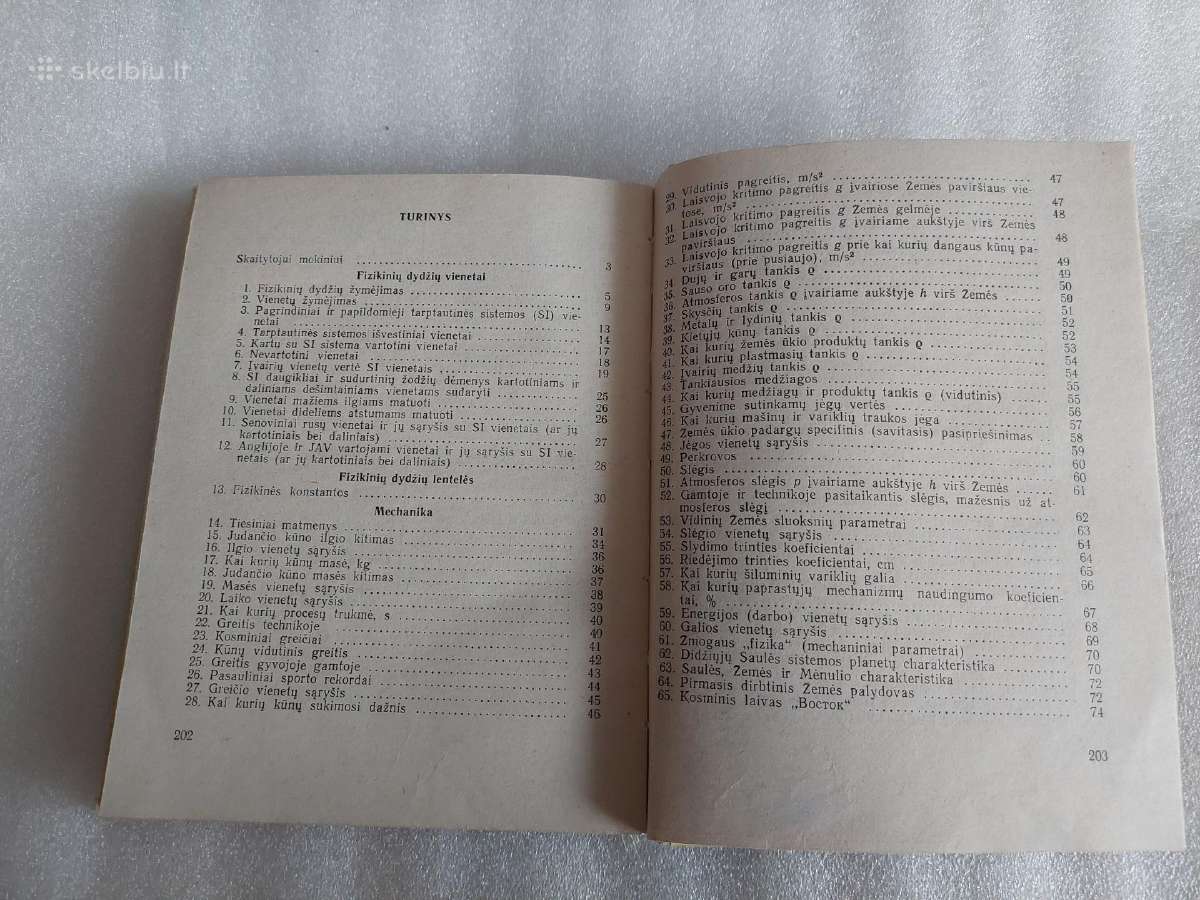 skelbiu.lt
TURINYS
Skaitytojui mokiniui 3
Fizikinių dydžių vienetai
1. Fizikinių dydžių žymėjimas 5
2. Vienetų žymėjimas 9
3. Pagrindiniai ir papildomieji tarptautinės sistemos (SI) vie-
netai 13
4. Tarptautinės sistemos išvestiniai vienetai 14
5. Kartu su SI sistema vartotini vienetai 17
6. Nevartotini vienetai 18
7. Įvairių vienetų vertė SI vienetais 19
8. SI daugikliai ir sudurtinių žodžių dėmenys kartotiniams ir
daliniams dešimtainiams vienetams sudaryti 25
9. Vienetai mažiems ilgiams matuoti 26
10. Vienetai dideliems atstumams matuoti 26
11. Senoviniai rusų vienetai ir jų sąryšis su SI vienetais (ar jų
kartotiniais bei daliniais) 27
12. Anglijoje ir JAV vartojami vienetai ir jų sąryšis su SI vie-
netais (ar jų kartotiniais bei daliniais) 28
Fizikinių dydžių lentelės
13. Fizikinės konstantos 30
Mechanika
14. Tiesiniai matmenys 31
15. Judančio kūno ilgio kitimas 34
16. Ilgio vienetų sąryšis 36
17. Kai kurių kūnų masė, kg 36
18. Judančio kūno masės kitimas 37
19. Masės vienetų sąryšis 38
20. Laiko vienetų sąryšis 39
21. Kai kurių procesų trukmė, s 40
22. Greitis technikoje 40
23. Kosminiai greičiai 41
24. Kūnų vidutinis greitis 42
25. Greitis gyvojoje gamtoje 43
26. Pasauliniai sporto rekordai 44
27. Greičio vienetų sąryšis 45
28. Kai kurių kūnų sukimosi dažnis 46
202
29. Vidutinis pagreitis, m/s² 47
30. Laisvojo kritimo pagreitis g įvairiose Žemės paviršiaus vie-
tose, m/s² 47
31. Laisvojo kritimo pagreitis g Žemės gelmėje 48
32. Laisvojo kritimo pagreitis g įvairiame aukštyje virš Žemės
paviršiaus 48
33. Laisvojo kritimo pagreitis g prie kai kurių dangaus kūnų pa-
viršiaus (prie pusiaujo), m/s² 49
34. Dujų ir garų tankis ϱ 49
35. Sauso oro tankis ϱ 50
36. Atmosferos tankis ϱ įvairiame aukštyje h virš Žemės 50
37. Skysčių tankis ϱ 51
38. Metalų ir lydinių tankis ϱ 52
39. Kietųjų kūnų tankis ϱ 52
40. Kai kurių žemės ūkio produktų tankis ϱ 53
41. Kai kurių plastmasių tankis ϱ 54
42. Įvairių medžių tankis ϱ 54
43. Tankiausios medžiagos 55
44. Kai kurių medžiagų ir produktų tankis ϱ (vidutinis) 55
45. Gyvenime sutinkamų jėgų vertės 56
46. Kai kurių mašinų ir variklių traukos jėga 57
47. Žemės ūkio padargų specifinis (savitasis) pasipriešinimas 58
48. Jėgos vienetų sąryšis 59
49. Perkrovos 60
50. Slėgis 60
51. Atmosferos slėgis p įvairiame aukštyje h virš Žemės 61
52. Gamtoje ir technikoje pasitaikantis slėgis, mažesnis už at-
mosferos slėgį 62
53. Vidinių Žemės sluoksnių parametrai 63
54. Slėgio vienetų sąryšis 64
55. Slydimo trinties koeficientai 64
56. Riedėjimo trinties koeficientai, cm 65
57. Kai kurių šiluminių variklių galia 66
58. Kai kurių paprastųjų mechanizmų naudingumo koeficien-
tai, % 67
59. Energijos (darbo) vienetų sąryšis 68
60. Galios vienetų sąryšis 69
61. Žmogaus „fizika“ (mechaniniai parametrai) 70
62. Didžiųjų Saulės sistemos planetų charakteristika 70
63. Saulės, Žemės ir Mėnulio charakteristika 72
64. Pirmasis dirbtinis Žemės palydovas 72
65. Kosminis laivas „Восток“ 74
203